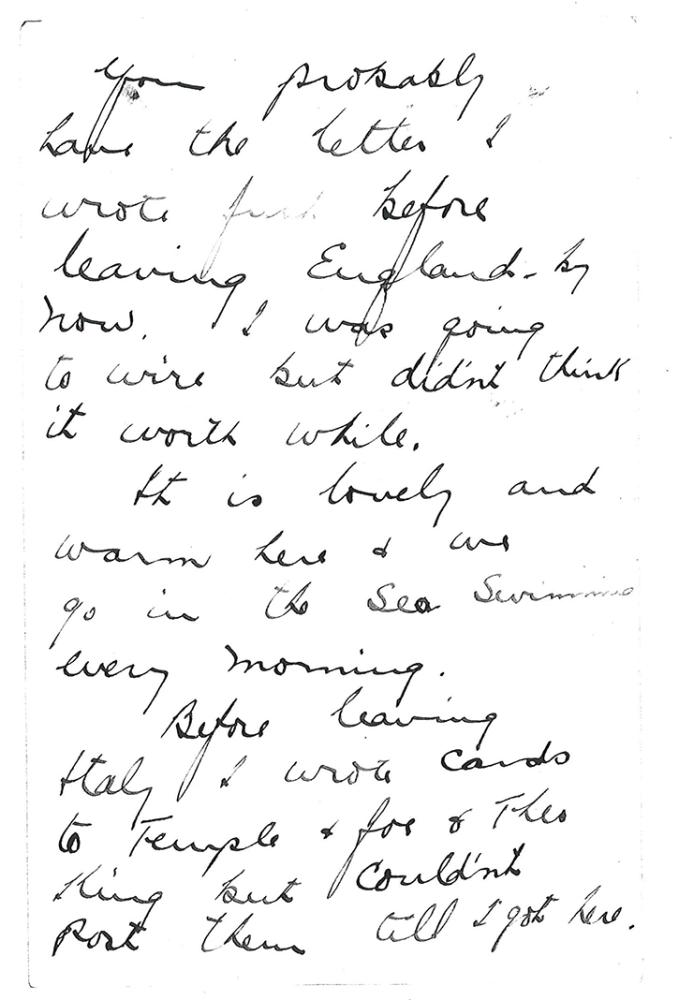 You probably
have the letter I
wrote just before
leaving England - by
now. I was going
to wire but didn't think
it worth while.
It is lovely and
warm here & we
go in the Sea Swimming
every morning.
Before leaving
Italy I wrote cards
to Temple & Joe & Theo
King but couldn't
post them till I got here.